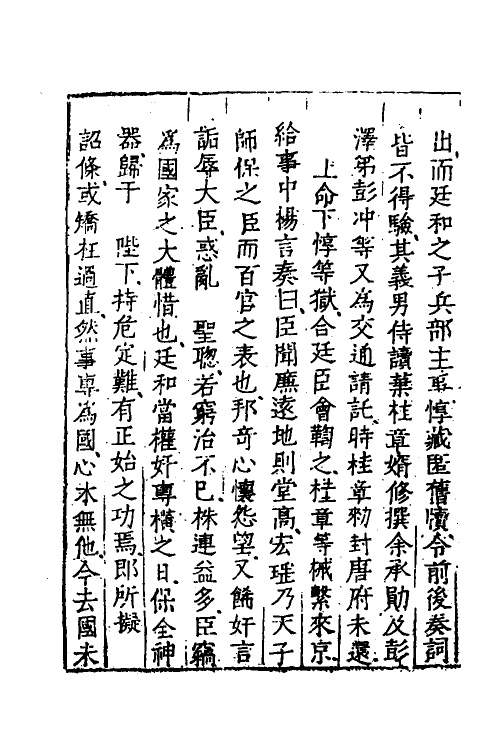 出而廷和之子兵部主事惇藏匿舊牘令前後奏詞
皆不得驗其義男侍讀葉桂章婿修撰余承勛及彭
澤弟彭冲等又為交通請託時桂章勑封唐府未還
上命下惇等獄合廷臣會鞫之桂章等械繫來京
給事中楊言奏曰臣聞廉遠地則堂高宏璡乃天子
師保之臣而百官之表也邦奇心懷怨望又餙奸言
詬辱大臣惑亂　聖聰若窮治不已株連益多臣竊
為國家之大體惜也廷和當權奸專橫之日保全神
器歸于　陛下持危定難有正始之功焉即所擬
詔條或矯枉過直然事專為國心本無他今去國未